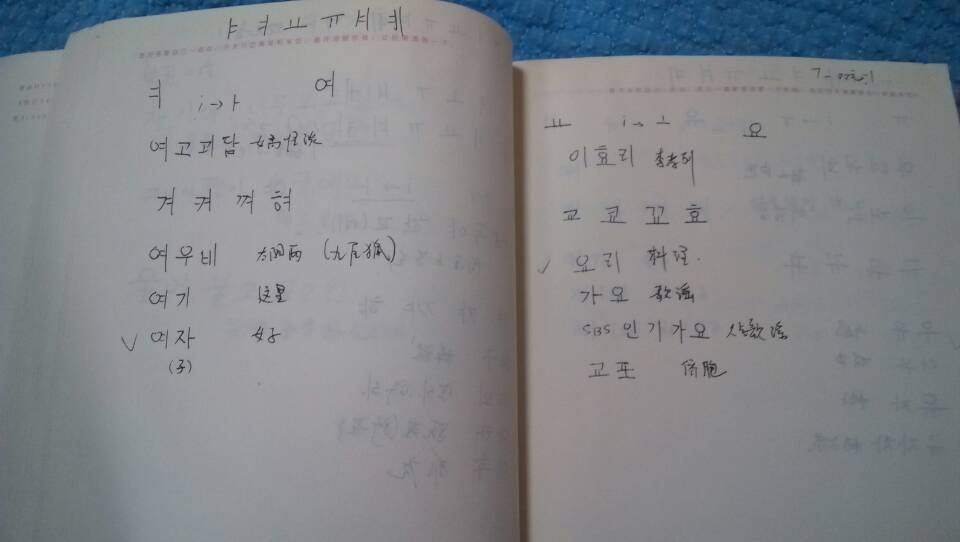 ㅑㅕㅛㅠㅖㅖ
ㅕ 여
i→ㅓ
여고괴담 女高怪谈
겨 켜 껴 혀
여우비 太阳雨 (九尾狐)
여기 这里
✓ 여자 女子
(子)
ㅛ i→ㅗ 요
이효리 李孝利
교 쿄 꾜 효
✓ 요리 料理.
가요 歌谣
SBS 인기가요 人气歌谣
교포 侨胞